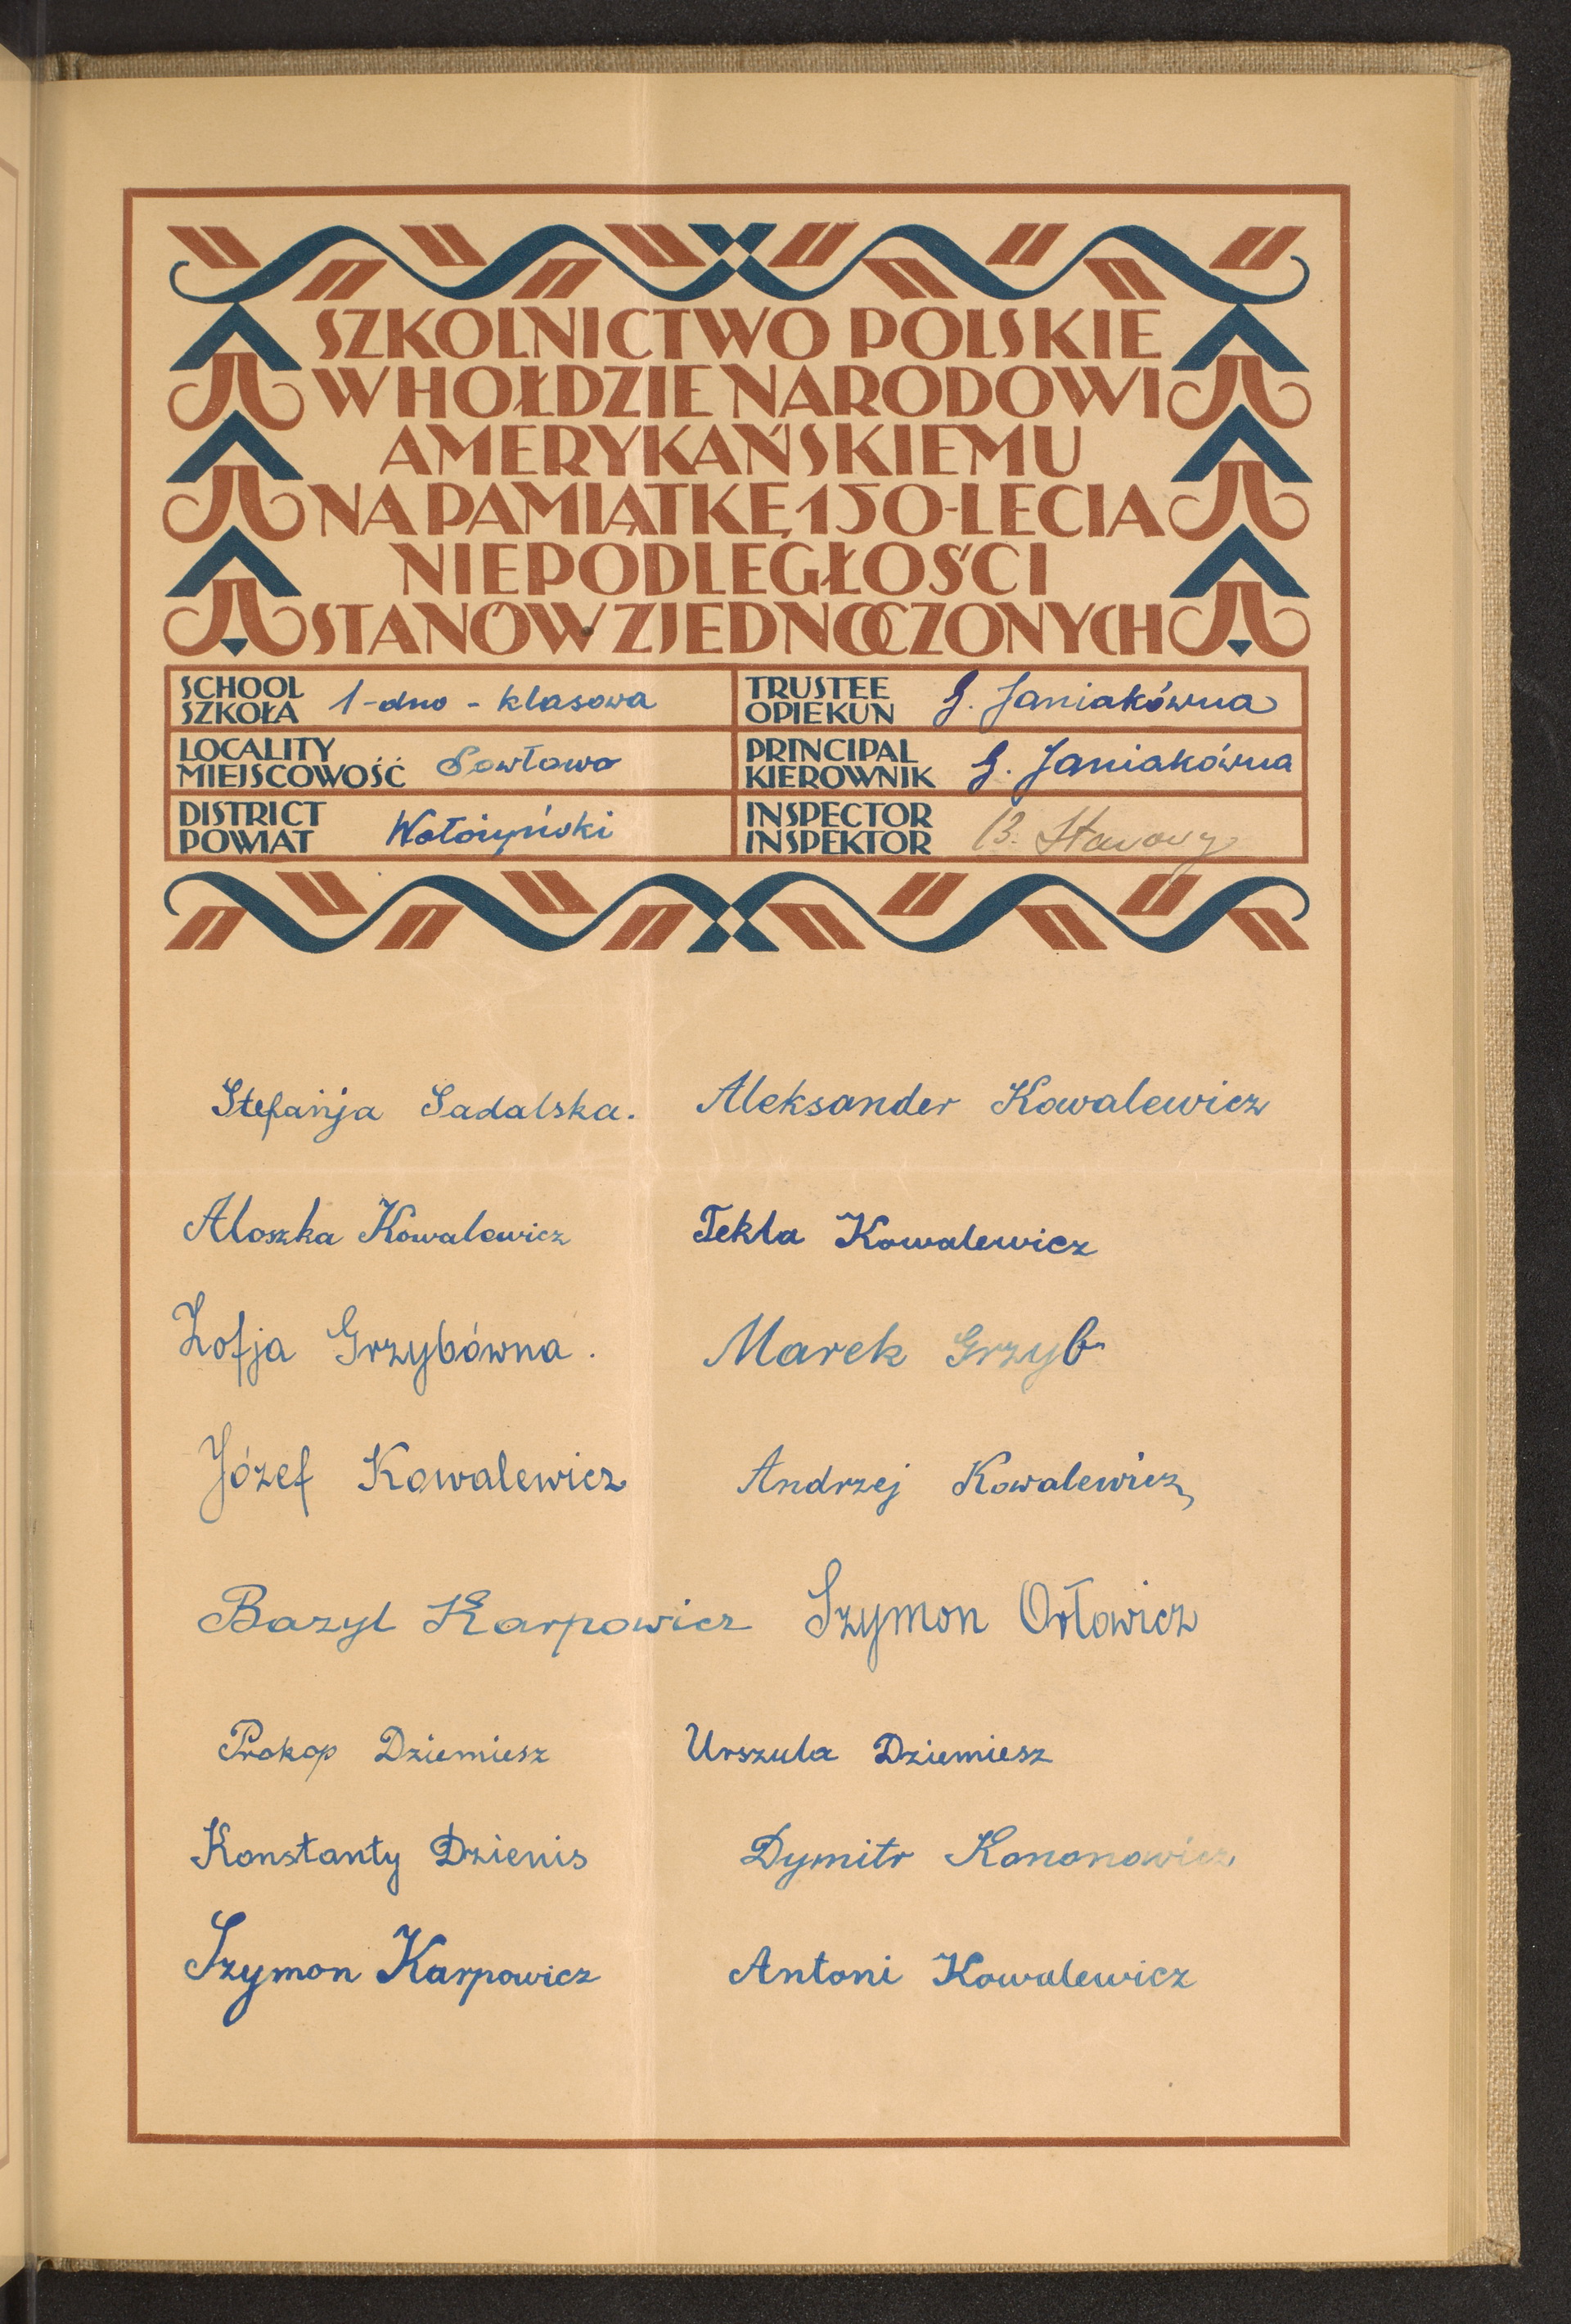 SZKOLNICTWO POLSKIE
W HOŁDZIE NARODOWI
AMERYKAŃSKIEMU
NA PAMIĄTKĘ 150-LECIA
NIEPODLEGŁOŚCI
STANÓW ZJEDNOCZONYCH
SCHOOL
SZKOŁA 1-dno - klasowa
TRUSTEE
OPIEKUN G. Janiakówna
LOCALITY
MIEJSCOWOŚĆ Sowłowo
PRINCIPAL
KIEROWNIK G. Janiakówna
DISTRICT
POWIAT Wołożyński
INSPECTOR
INSPEKTOR B.
Stefanja Sadalska. Aleksander Kowalewicz
Aloszka Kowalewicz Tekla Kowalewicz
Zofja Grzybówna. Marek Grzyb
Józef Kowalewicz Andrzej Kowalewicz
Bazyl Karpowicz Szymon Orłowicz
Prokop Dziemiesz Urszula Dziemiesz
Konstanty Dzienis Dymitr Kononowicz
Szymon Karpowicz Antoni Kowalewicz